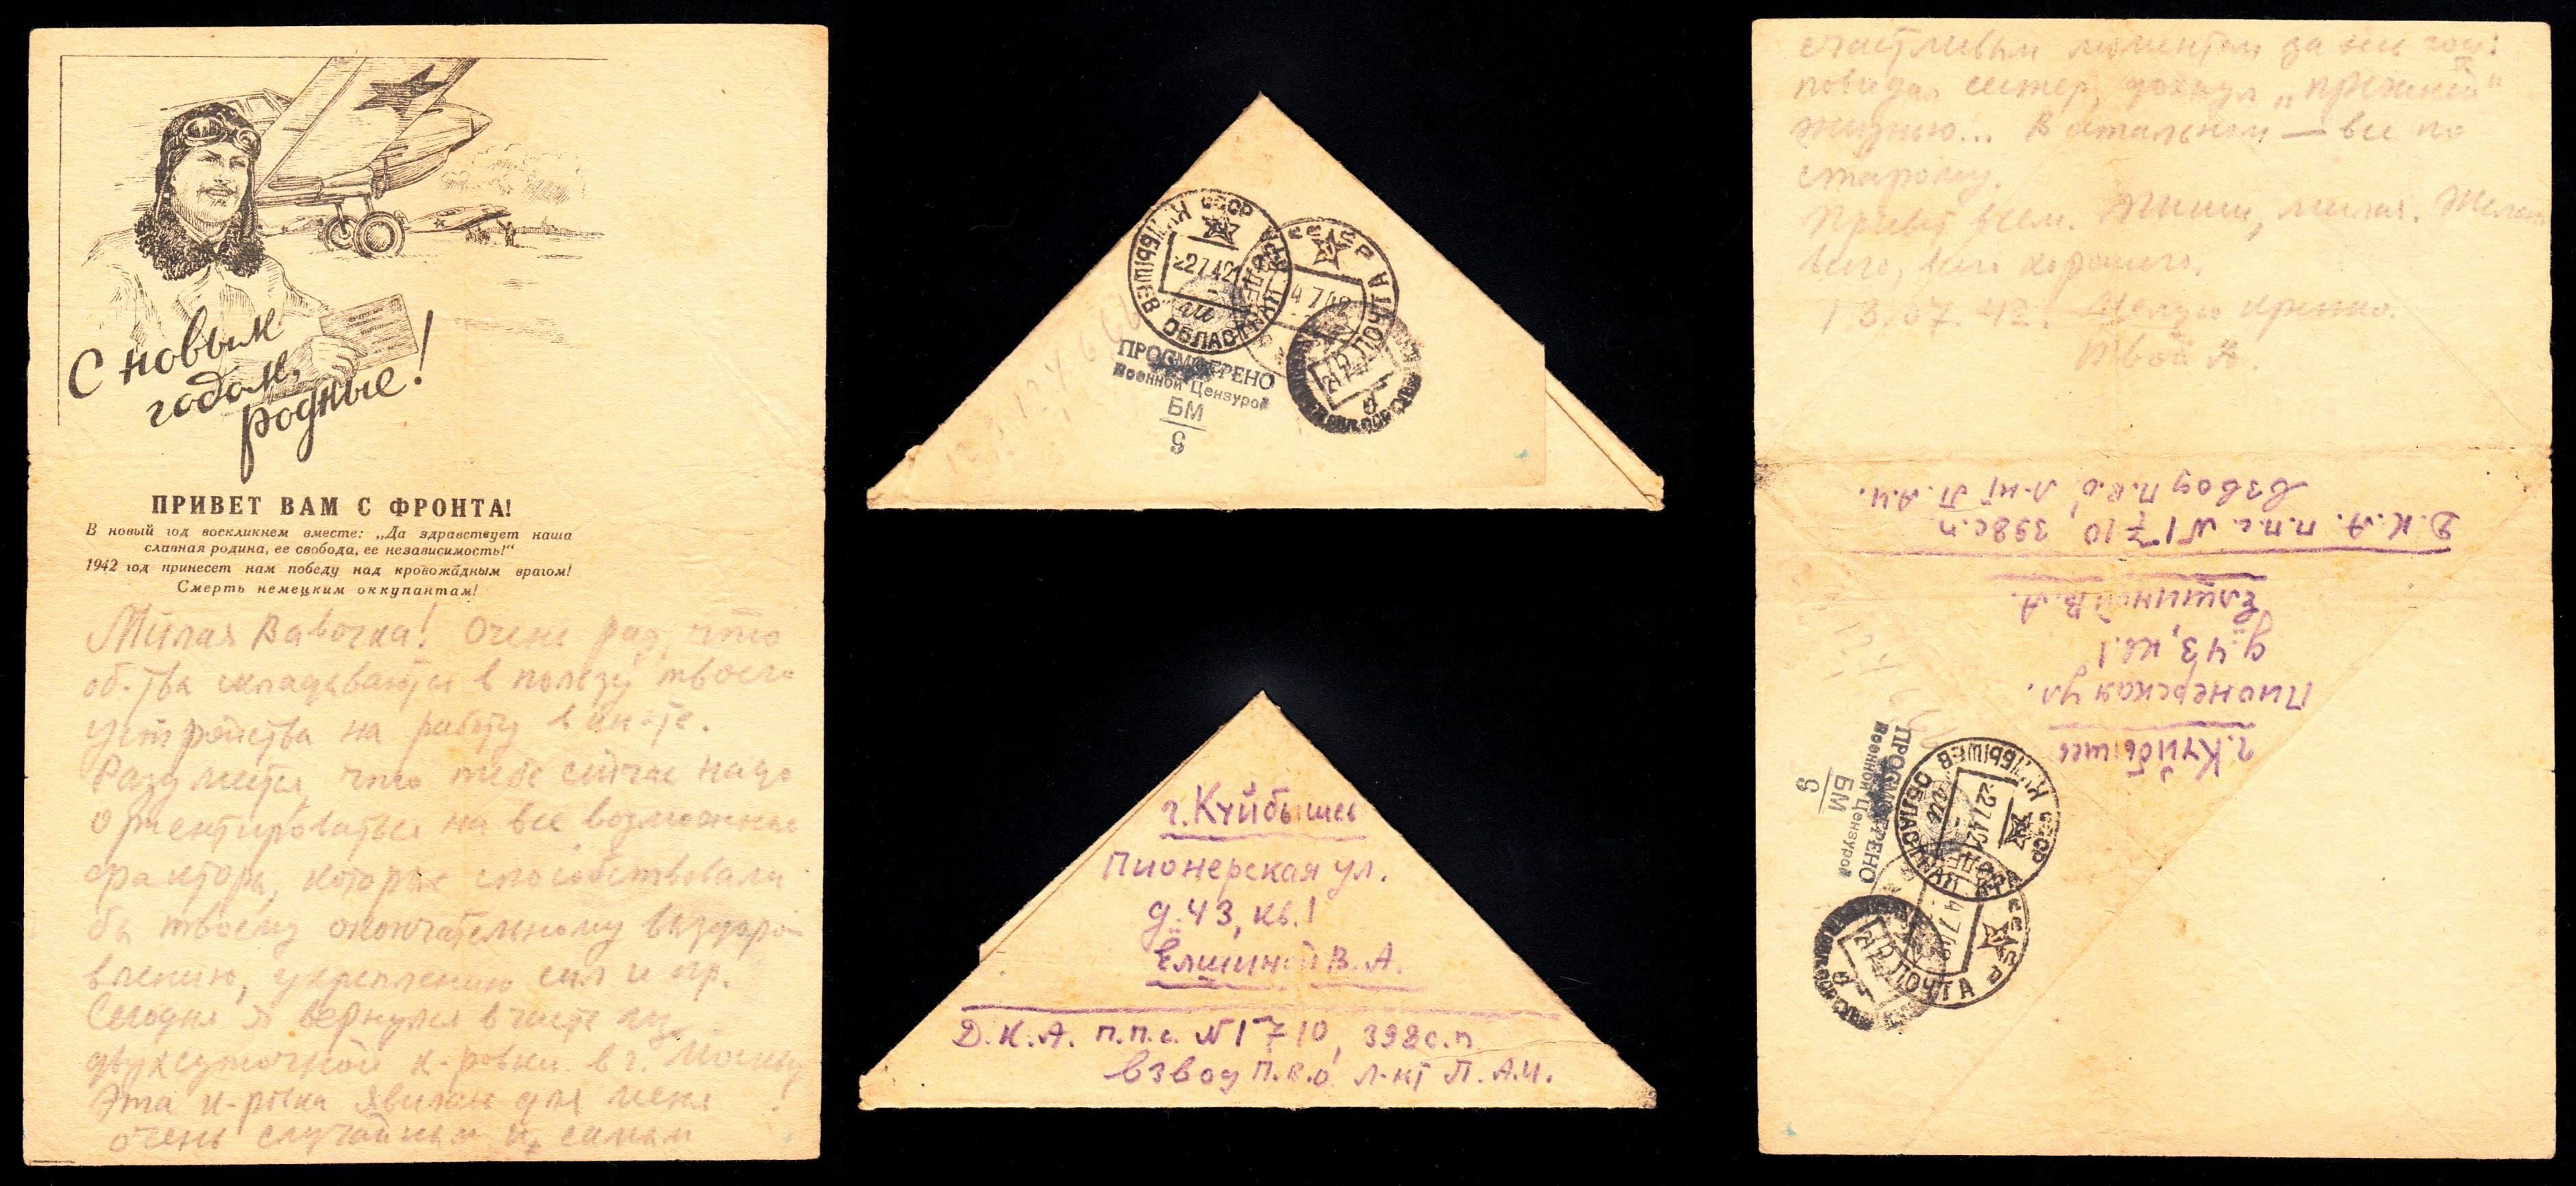 С новым
годом,
родные!
ПРИВЕТ ВАМ С ФРОНТА!
В новый год воскликнем вместе: „Да здравствует наша
славная родина, ее свобода, ее независимость!“
1942 год принесет нам победу над кровожадным врагом!
Смерть немецким оккупантам!
Милая Вавочка! Очень рад, что
об-тва складываются в пользу твоего
устройства на работу в ин-те.
Разумеется, что тебе сейчас надо
ориентироваться на все возможные
факторы, которые способствовали
бы твоему окончательному выздоро-
влению, укреплению сил и пр.
Сегодня я вернулся в часть из
двухсуточной к-ровки в г. Москву
Эта к-ровка явилась для меня
очень случайным и самым
СССР
КУЙБЫШЕВ ОБЛАСТНАЯ
27.42
СССР
ПОЧТА
4 7 42
ПРОСМОТРЕНО
Военной Цензурой
БМ
6
г. Куйбышев
Пионерская ул.
д. 43, кв. 1
Елшиной В. А.
Д. К. А. п.п.с. №1710, 398 с.п
взвод П.В.О. л-нт П. А. И.
счастливым моментом за весь год:
повидал сестер, дохнул „прежней“
жизнью... В остальном — все по
старому.
Привет всем. Пиши, милая. Желаю
всего, всего хорошего.
13/07.42. Целую крепко.
Твой А.
Д. К. А. п.п.с. №1710, 398 с.п
взвод П.В.О. л-нт П. А. И.
Елшиной В. А.
д. 43, кв. 1
Пионерская ул.
г. Куйбышев
ПРОСМОТРЕНО
Военной Цензурой
БМ
6
СССР
КУЙБЫШЕВ ОБЛАСТНАЯ
27.42
СССР
4 7 42
ПОЧТА